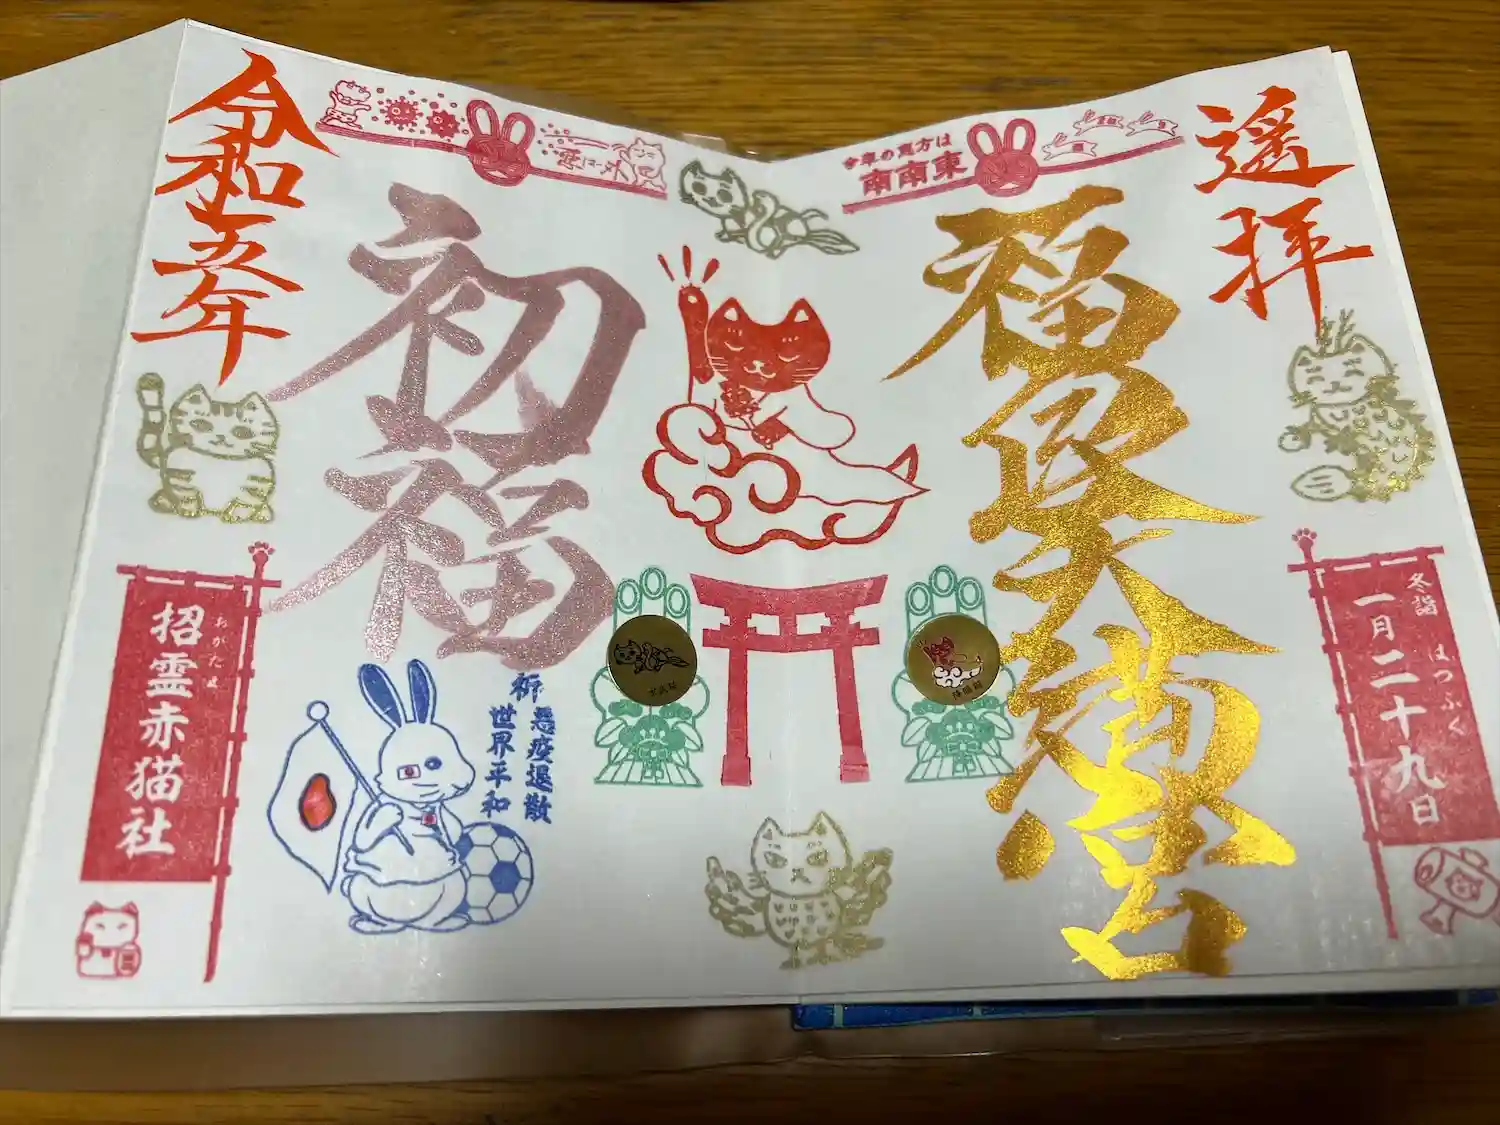 遥拝
福良天満宮
冬詣
はつふく
一月二十九日
今年の恵方は
南南東
初福
悪は外
祈
悪疫退散
世界平和
令和五年
おがたま
招霊赤猫社